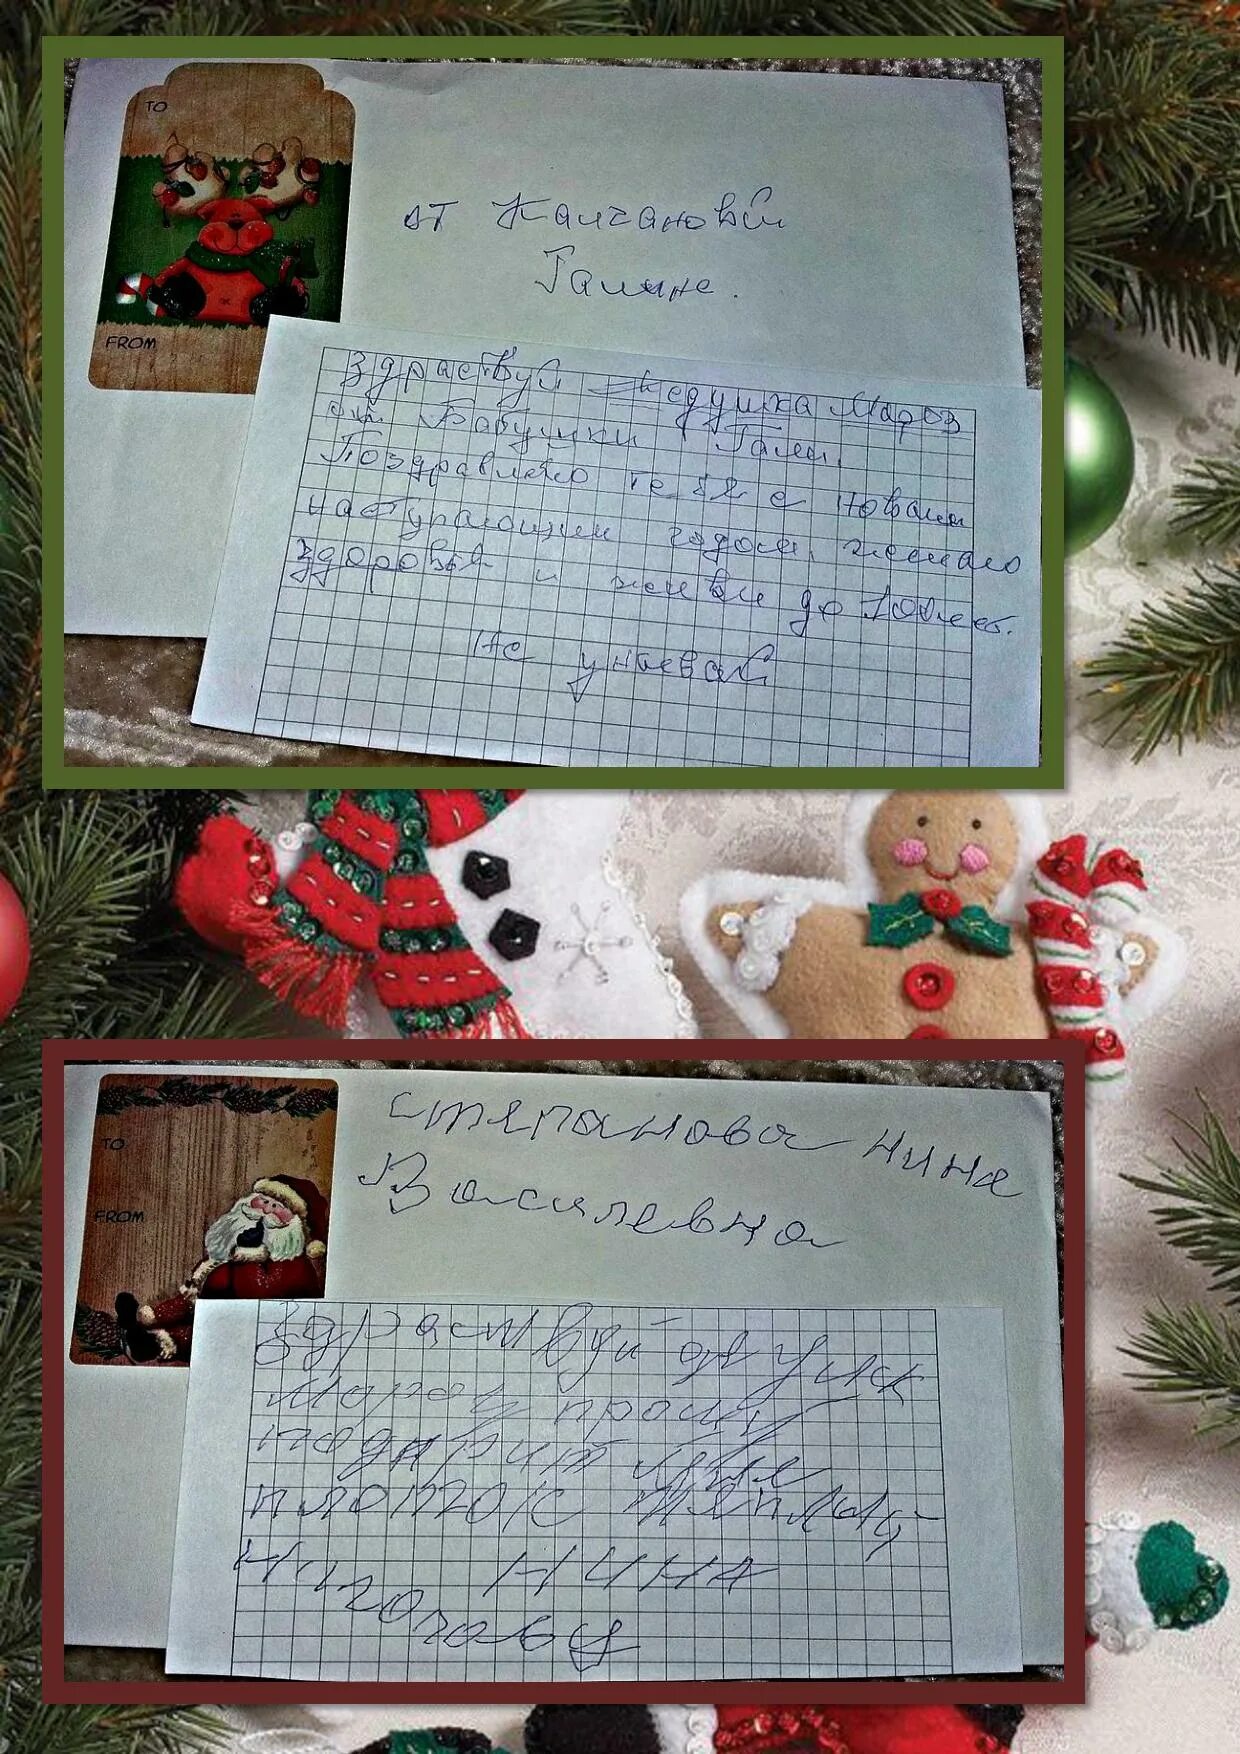 TO
FROM
от Калчановой
Галине.
Здраствуй Дедушка Мароз
от Бабушки Гали.
Поздравляю тебя с новым
наступающим годом, желаю
здоровья и живи до 100 лет.
Не унывай
TO
FROM
Степанова нина
Василевна
Здраствуй дедушка
мароз прошу
падарит мне
платок тёплый
Нина
на голову